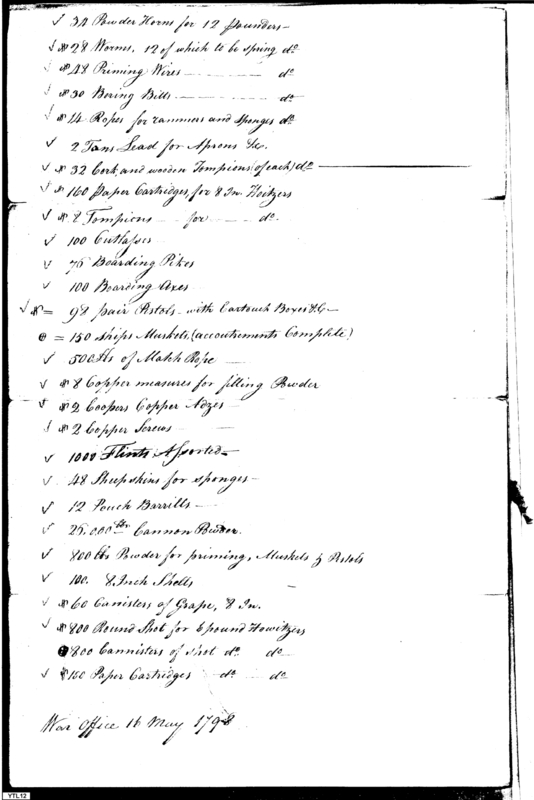 ✓ 34 Powder Horns for 12 pounders
✓ * 28 Worms, 12 of which to be spring do
✓ * 48 Priming Wires do
✓ * 30 Boring Bitts do
✓ * 14 Ropes for rammers and sponges do
✓ 2 Tons Lead for Aprons &c.
✓ * 32 Cork and wooden Tompions (of each) do
✓ * 160 Paper Cartridges, for 8 In. Hoitzers
✓ * 8 Tompions for do.
✓ 100 Cutlasses
✓ 75 Boarding Pikes
✓ 100 Boarding Axes
✓ * = 98 pair Pistols with Cartouch Boxes &c
⊕ = 150 ships Muskets, (accoutrements Complete)
✓ 500 lbs of Match Rope
✓ * 8 Copper measures for filling Powder
✓ * 2 Coopers Copper Adzes
✓ * 2 Copper Screws
✓ 1000 Flints Assorted
✓ 48 Sheepskins for sponges
✓ 12 Pouch Barrills
✓ 25,000 lbs Cannon Powder.
✓ 800 lbs Powder for priming, Muskets & Pistols
✓ 100. 8 Inch Shells
✓ * 60 Canisters of Grape, 8 In.
✓ * 800 Round Shot for 6 pound Howitzers
⊕ 800 Cannisters of shot do do
✓ * 160 Paper Cartridges do do
War Office 16 May 1798
YTL12